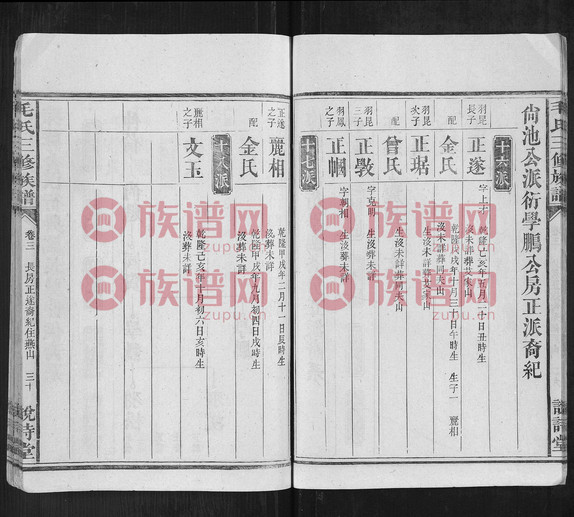 尙池公派衍學鵬公房正派裔紀
十六派
羽昆長子
正遂
字上才
乾隆乙亥年五月二十日丑時生
沒葬艾家山
配
金氏
乾隆戊年十月三十日午時生 生子一 麗相
沒未詳葬艾家山
羽昆次子
正琚
生沒未詳葬岡夫山
配
曾氏
生沒未詳葬同夫山
羽昆三子
正斅
字克明
生沒葬未詳
羽鳳之子
正幗
字朝相
生沒葬未詳
十七派
正遂之子
麗相
乾隆甲戌年二月十一日辰時生
沒葬未詳
配
金氏
乾隆甲戌年九月初四日戌時生
沒葬未詳
十八派
麗相之子
文玉
乾隆己亥年十月初六日亥時生
沒葬未詳
毛氏三修族譜
卷三
長房正遂裔紀住燕山
三十
說詩堂
族谱网
zupu.cn
族谱网
zupu.cn
族谱网
zupu.cn
族谱网
zupu.cn